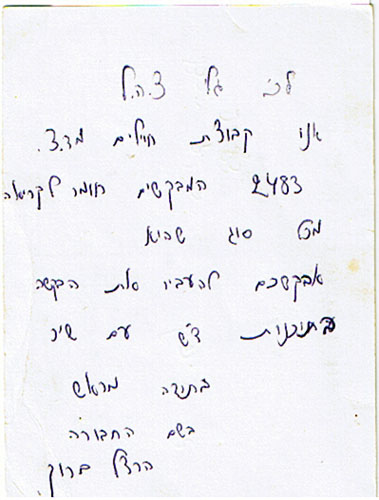 לכ' גלי צ.ה.ל
אנו קבוצת חיילים מד.צ.
2483 המבקשים חומר לקריאה
מכל סוג שהוא
אבקשכם להעביר את הבקשה
בתוכנית ד"ש עם שיר
בתודה מראש
בשם החבורה
הרצל ברוך